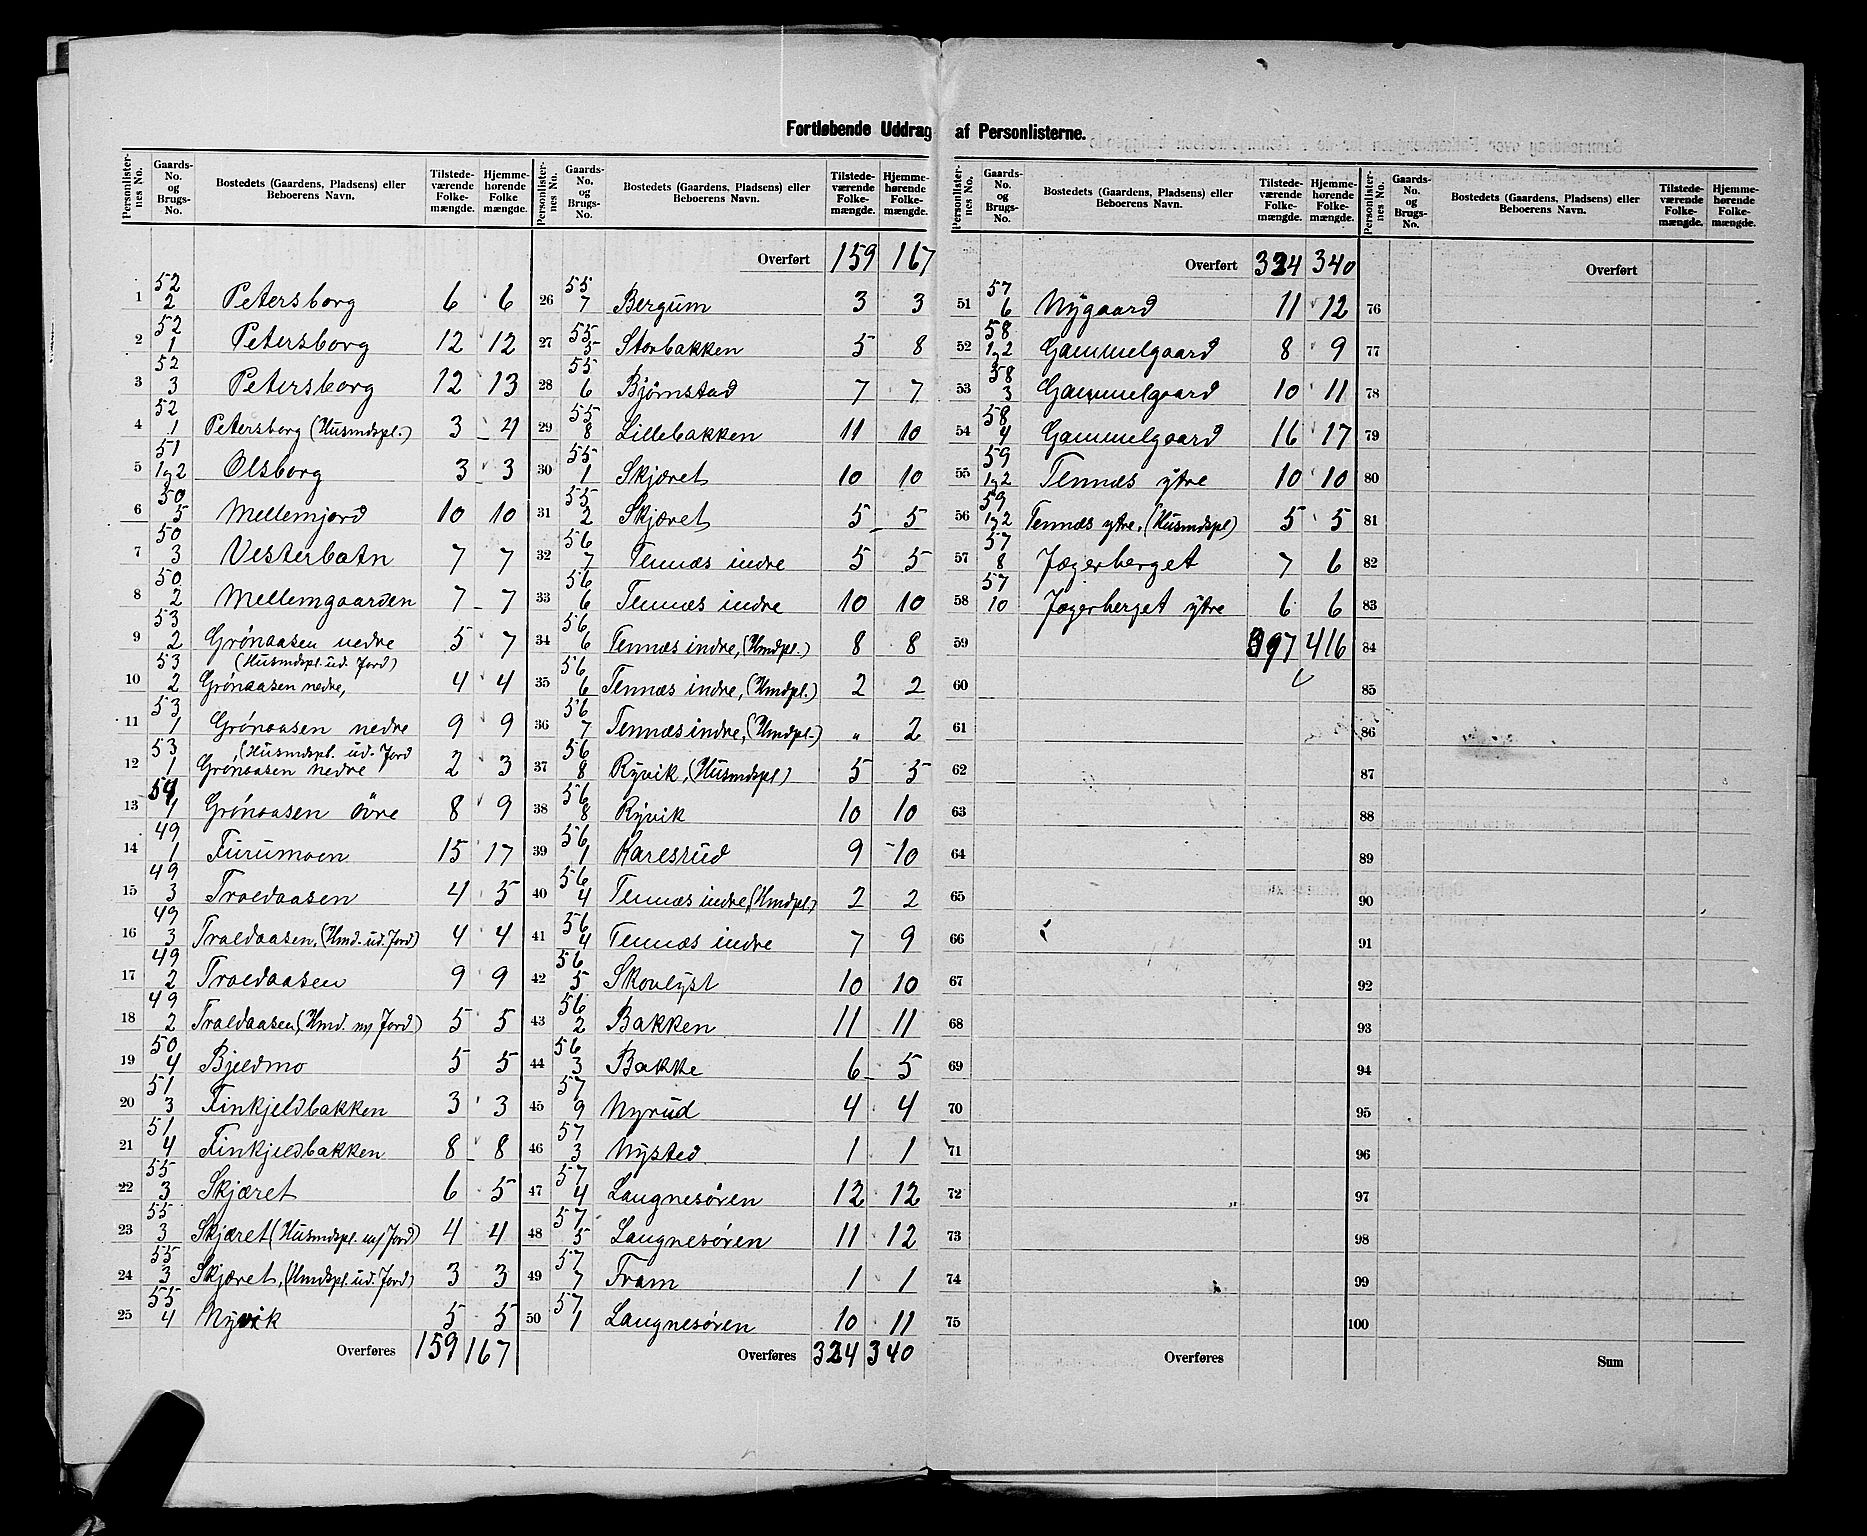 Fortløbende Uddrag af Personlisterne.
Personlister-nes No. | Gaards-No. og Brugs-No. | Bostedets (Gaardens, Pladsens) eller Beboerens Navn. | Tilstede-værende Folke-mængde. | Hjemme-hørende Folke mængde.
1 52/2 Petersborg 6 6
2 52/1 Petersborg 12 12
3 52/3 Petersborg 12 13
4 52/1 Petersborg (Husmdspl.) 3 4
5 51/1og2 Olsborg 3 3
6 50/5 Mellemjord 10 10
7 50/3 Vesterbotn 7 7
8 50/2 Mellemgaarden 7 7
9 53/2 Grönaasen nedre 5 7
10 53/2 Grönaasen nedre, (Husmdspl. ud. Jord) 4 4
11 53/1 Grönaasen nedre 9 9
12 53/1 Grönaasen nedre (Husmdspl. ud. Jord 2 3
13 54/1 Grönaasen övre 8 9
14 49/1 Furumoen 15 17
15 49/3 Troldaasen 4 5
16 49/3 Troldaasen, (Hmd. ud. Jord) 4 4
17 49/2 Troldaasen 9 9
18 49/2 Troldaasen, (Hmd. m/ Jord) 5 5
19 50/4 Bjeldmo 5 5
20 51/3 Finkjeldbakken 3 3
21 51/4 Finkjeldbakken 8 8
22 55/3 Skjæret 6 5
23 55/3 Skjæret (Husmdspl. m/ Jord) 4 4
24 55/3 Skjæret, (Hmdspl. ud. Jord) 3 3
25 55/4 Nyvik 5 5
Overføres 159 167
Personlister-nes No. | Gaards-No. og Brugs-No. | Bostedets (Gaardens, Pladsens) eller Beboerens Navn. | Tilstede-værende Folke-mængde. | Hjemme-hørende Folke-mængde.
Overført 159 167
26 55/7 Bergum 3 3
27 55/5 Storbakken 5 8
28 55/6 Bjørnstad 7 7
29 55/8 Lillebakken 11 10
30 55/1 Skjæret 10 10
31 55/2 Skjæret 5 5
32 56/7 Tennæs indre 5 5
33 56/6 Tennæs indre 10 10
34 56/6 Tennæs indre, (Hmdpl.) 8 8
35 56/6 Tennæs indre, (Hmdpl.) 2 2
36 56/7 Tennæs indre, (Hmdpl.) " 2
37 56/8 Ryvik, (Husmdspl) 5 5
38 56/8 Ryvik 10 10
39 56/1 Karlsrud 9 10
40 56/4 Tennæs indre, (Hmdpl.) 2 2
41 56/4 Tennæs indre 7 9
42 56/5 Skovlyst 10 10
43 56/2 Bakken 11 11
44 56/3 Bakke 6 5
45 57/9 Nyrud 4 4
46 57/3 Nysted 1 1
47 57/4 Laugnesören 12 12
48 57/5 Laugnesören 11 12
49 57/7 Fram 1 1
50 57/1 Laugnesören 10 11
Overføres 324 340
Personlister-nes No. | Gaards-No. og Brugs-No. | Bostedets (Gaardens, Pladsens) eller Beboerens Navn. | Tilstede-værende Folke-mængde. | Hjemme-hørende Folke-mængde.
Overført 324 340
51 57/6 Nygaard 11 12
52 58/1og2 Gammelgaard 8 9
53 58/3 Gammelgaard 10 11
54 58/4 Gammelgaard 16 17
55 59/1og2 Tennæs ytre 10 10
56 59/1og2 Tennæs ytre, (Husmdspl) 5 5
57 57/8 Jægerberget 7 6
58 57/10 Jægerberget ytre 6 6
59 397 416
60
61
62
63
64
65
66
67
68
69
70
71
72
73
74
75
Overføres
Personlister-nes No. | Gaards-No. og Brugs-No. | Bostedets (Gaardens, Pladsens) eller Beboerens Navn. | Tilstede-værende Folke-mængde. | Hjemme-hørende Folke-mængde.
Overført
76
77
78
79
80
81
82
83
84
85
86
87
88
89
90
91
92
93
94
95
96
97
98
99
100
Sum